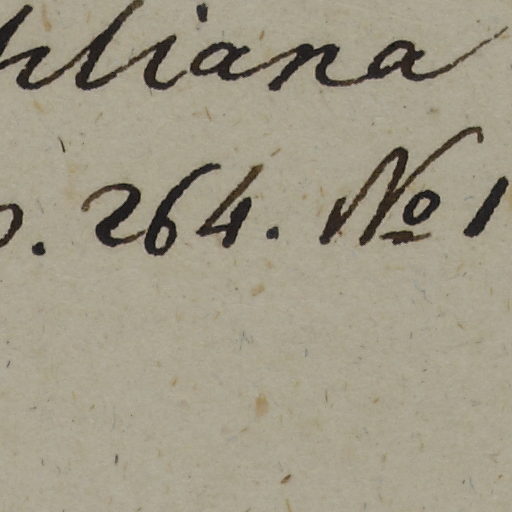 hliana
p. 264. No 1